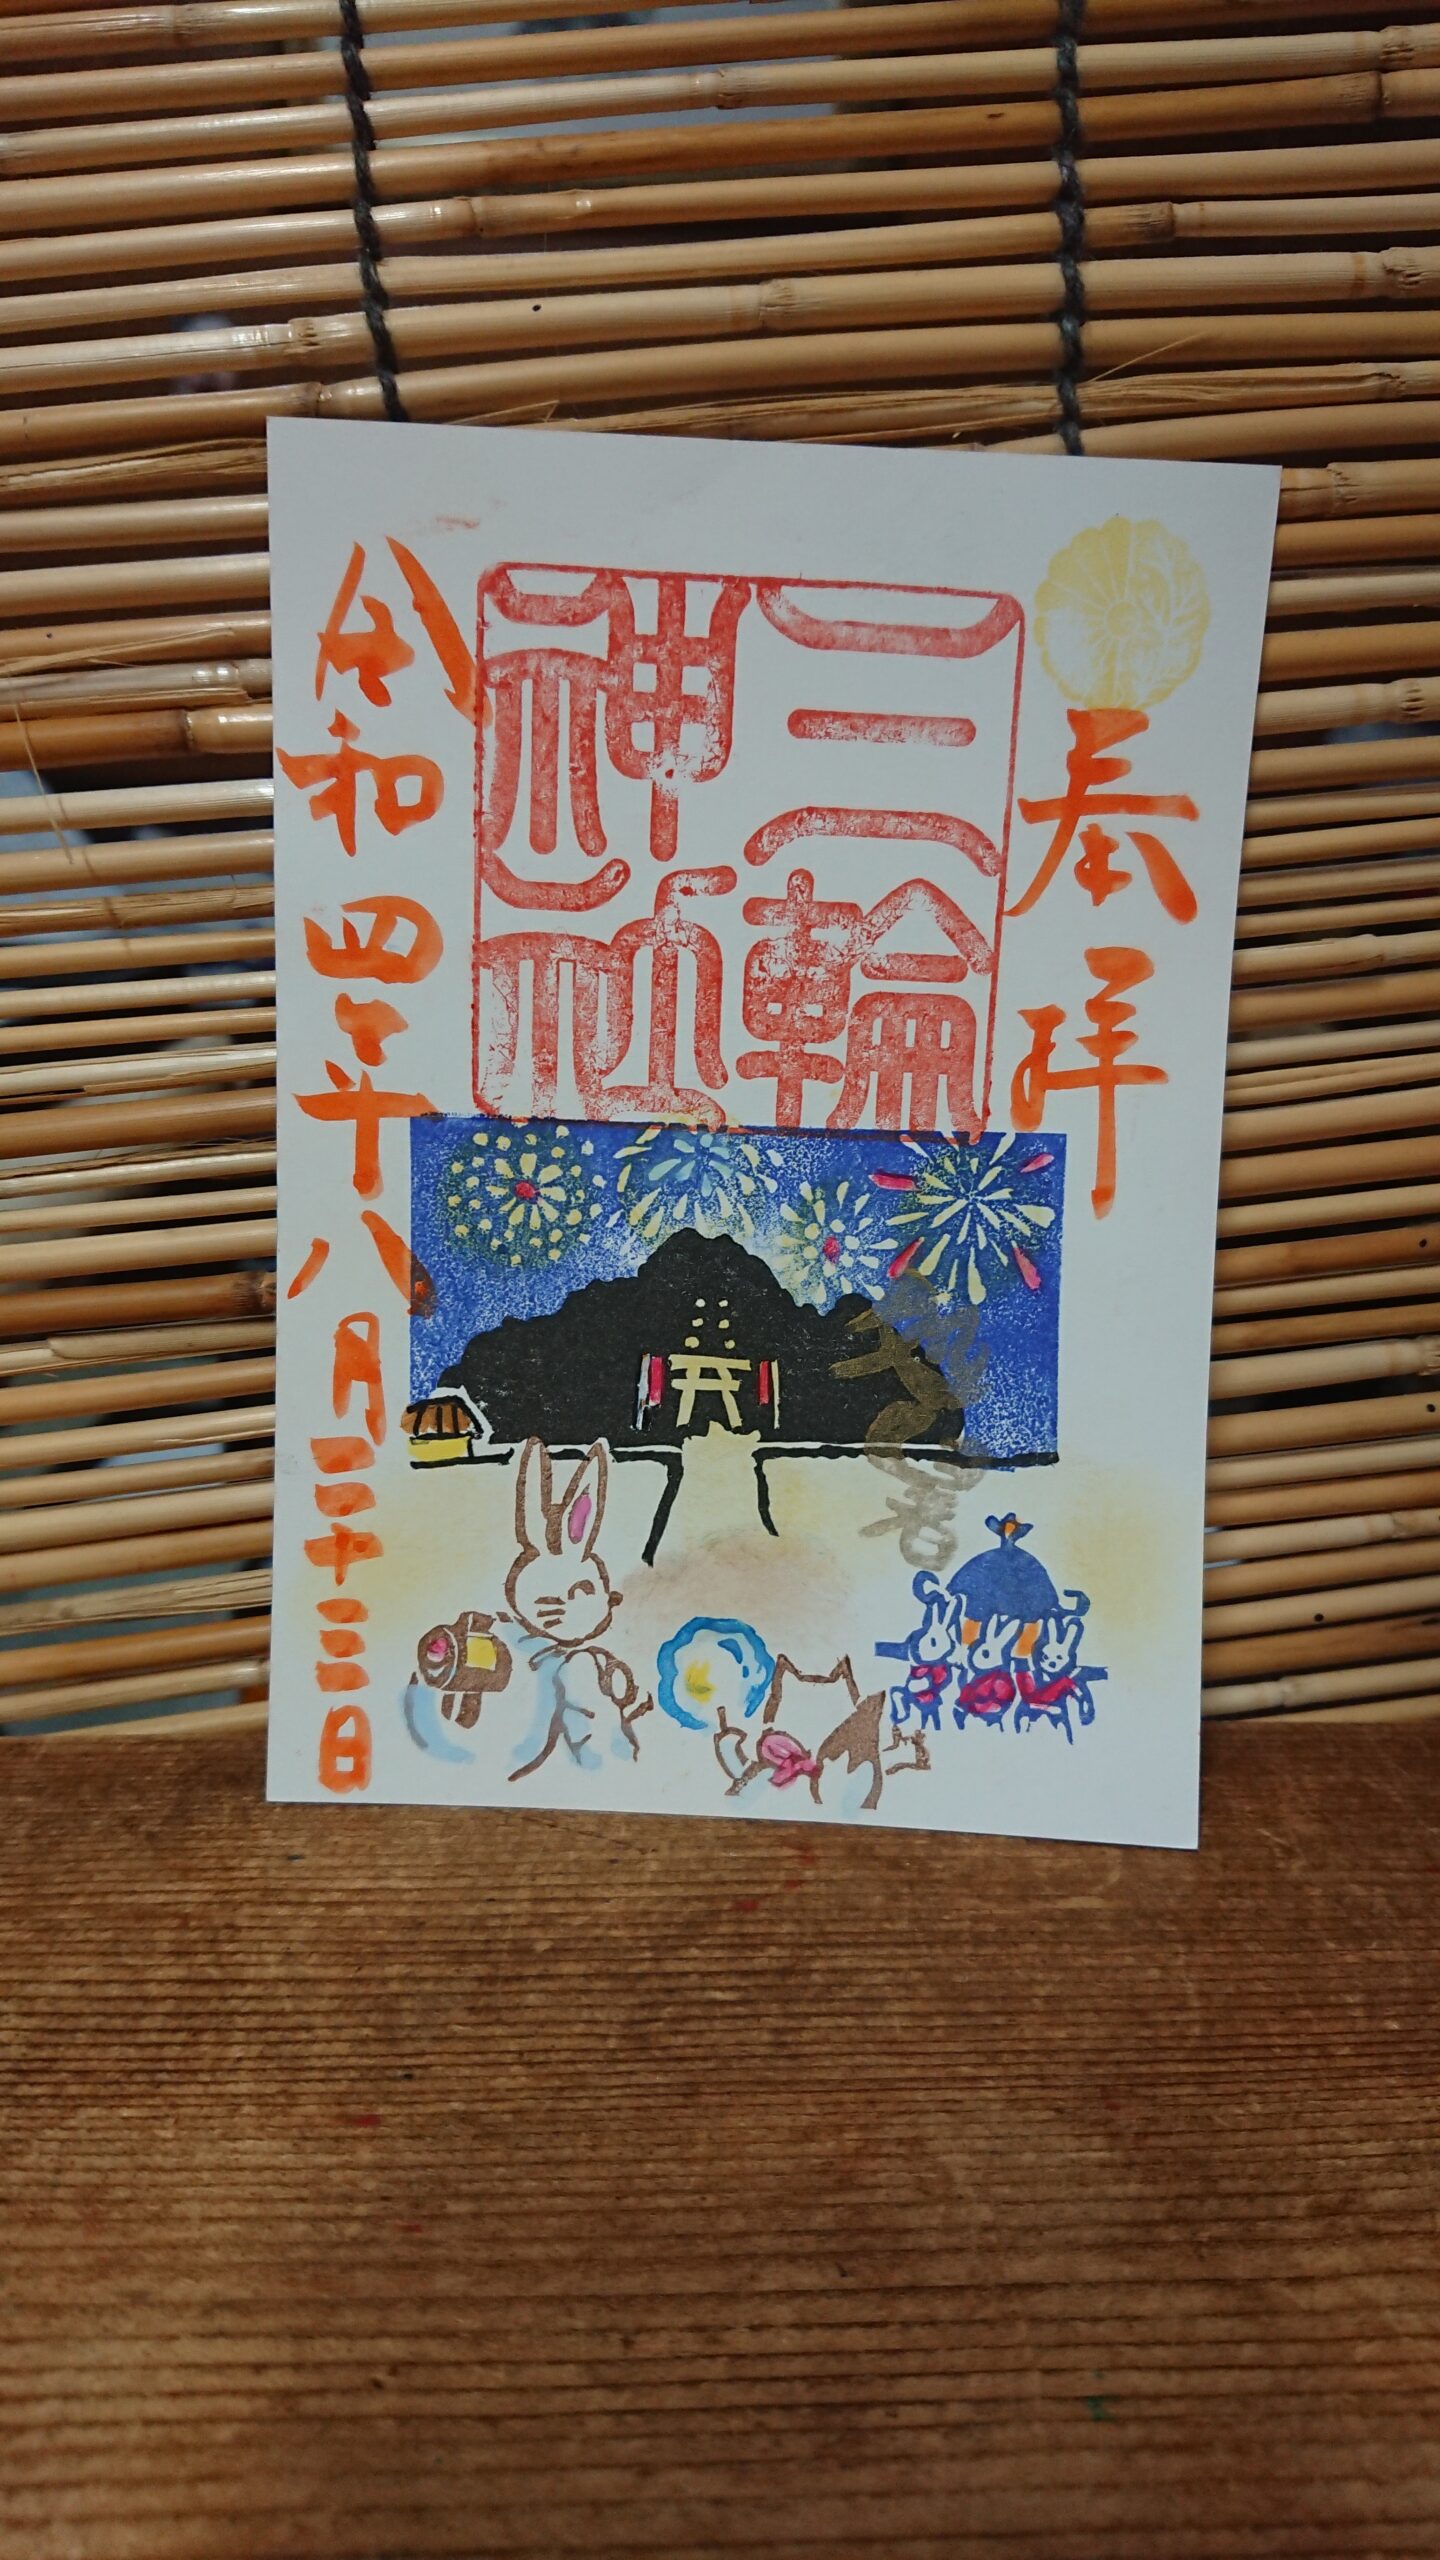 奉拝
三輪
神社
処暑
令和四年八月二十三日